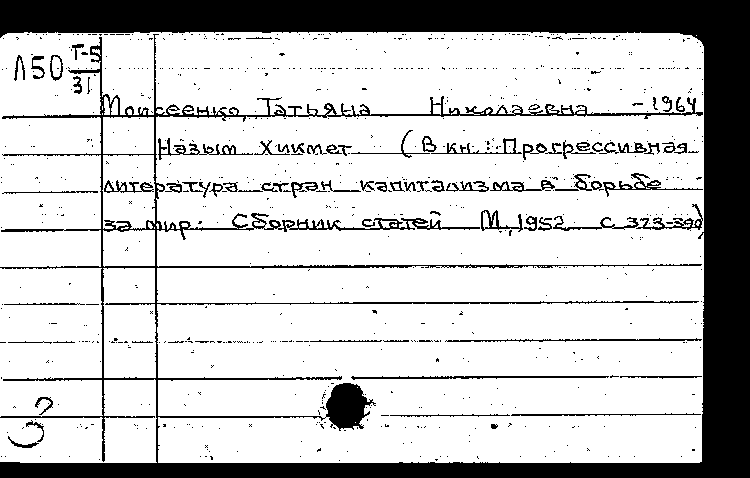 Л50 Т-5
31
Моисеенко, Татьяна Николаевна -1964
Назым Хикмет (В кн.: Прогрессивная
литература стран капитализма в борьбе
за мир: Сборник статей М, 1952 с 373-390)
3